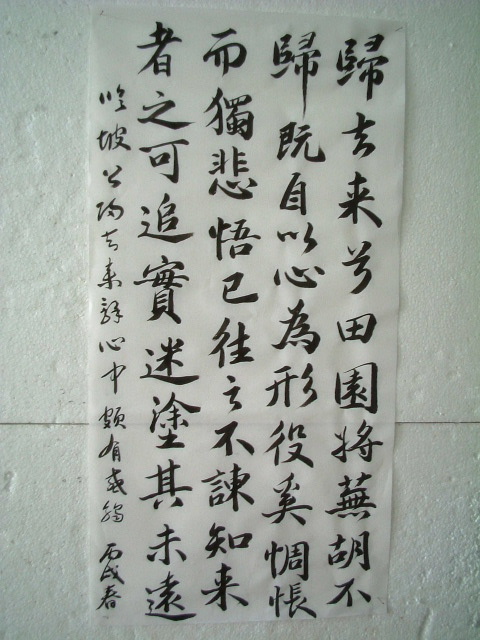 歸去来兮田園将蕪胡不
歸既自以心為形役奚惆悵
而獨悲悟已往之不諫知来
者之可追實迷塗其未遠
临坡公归去来辞心中頗有感觸 丙戌春